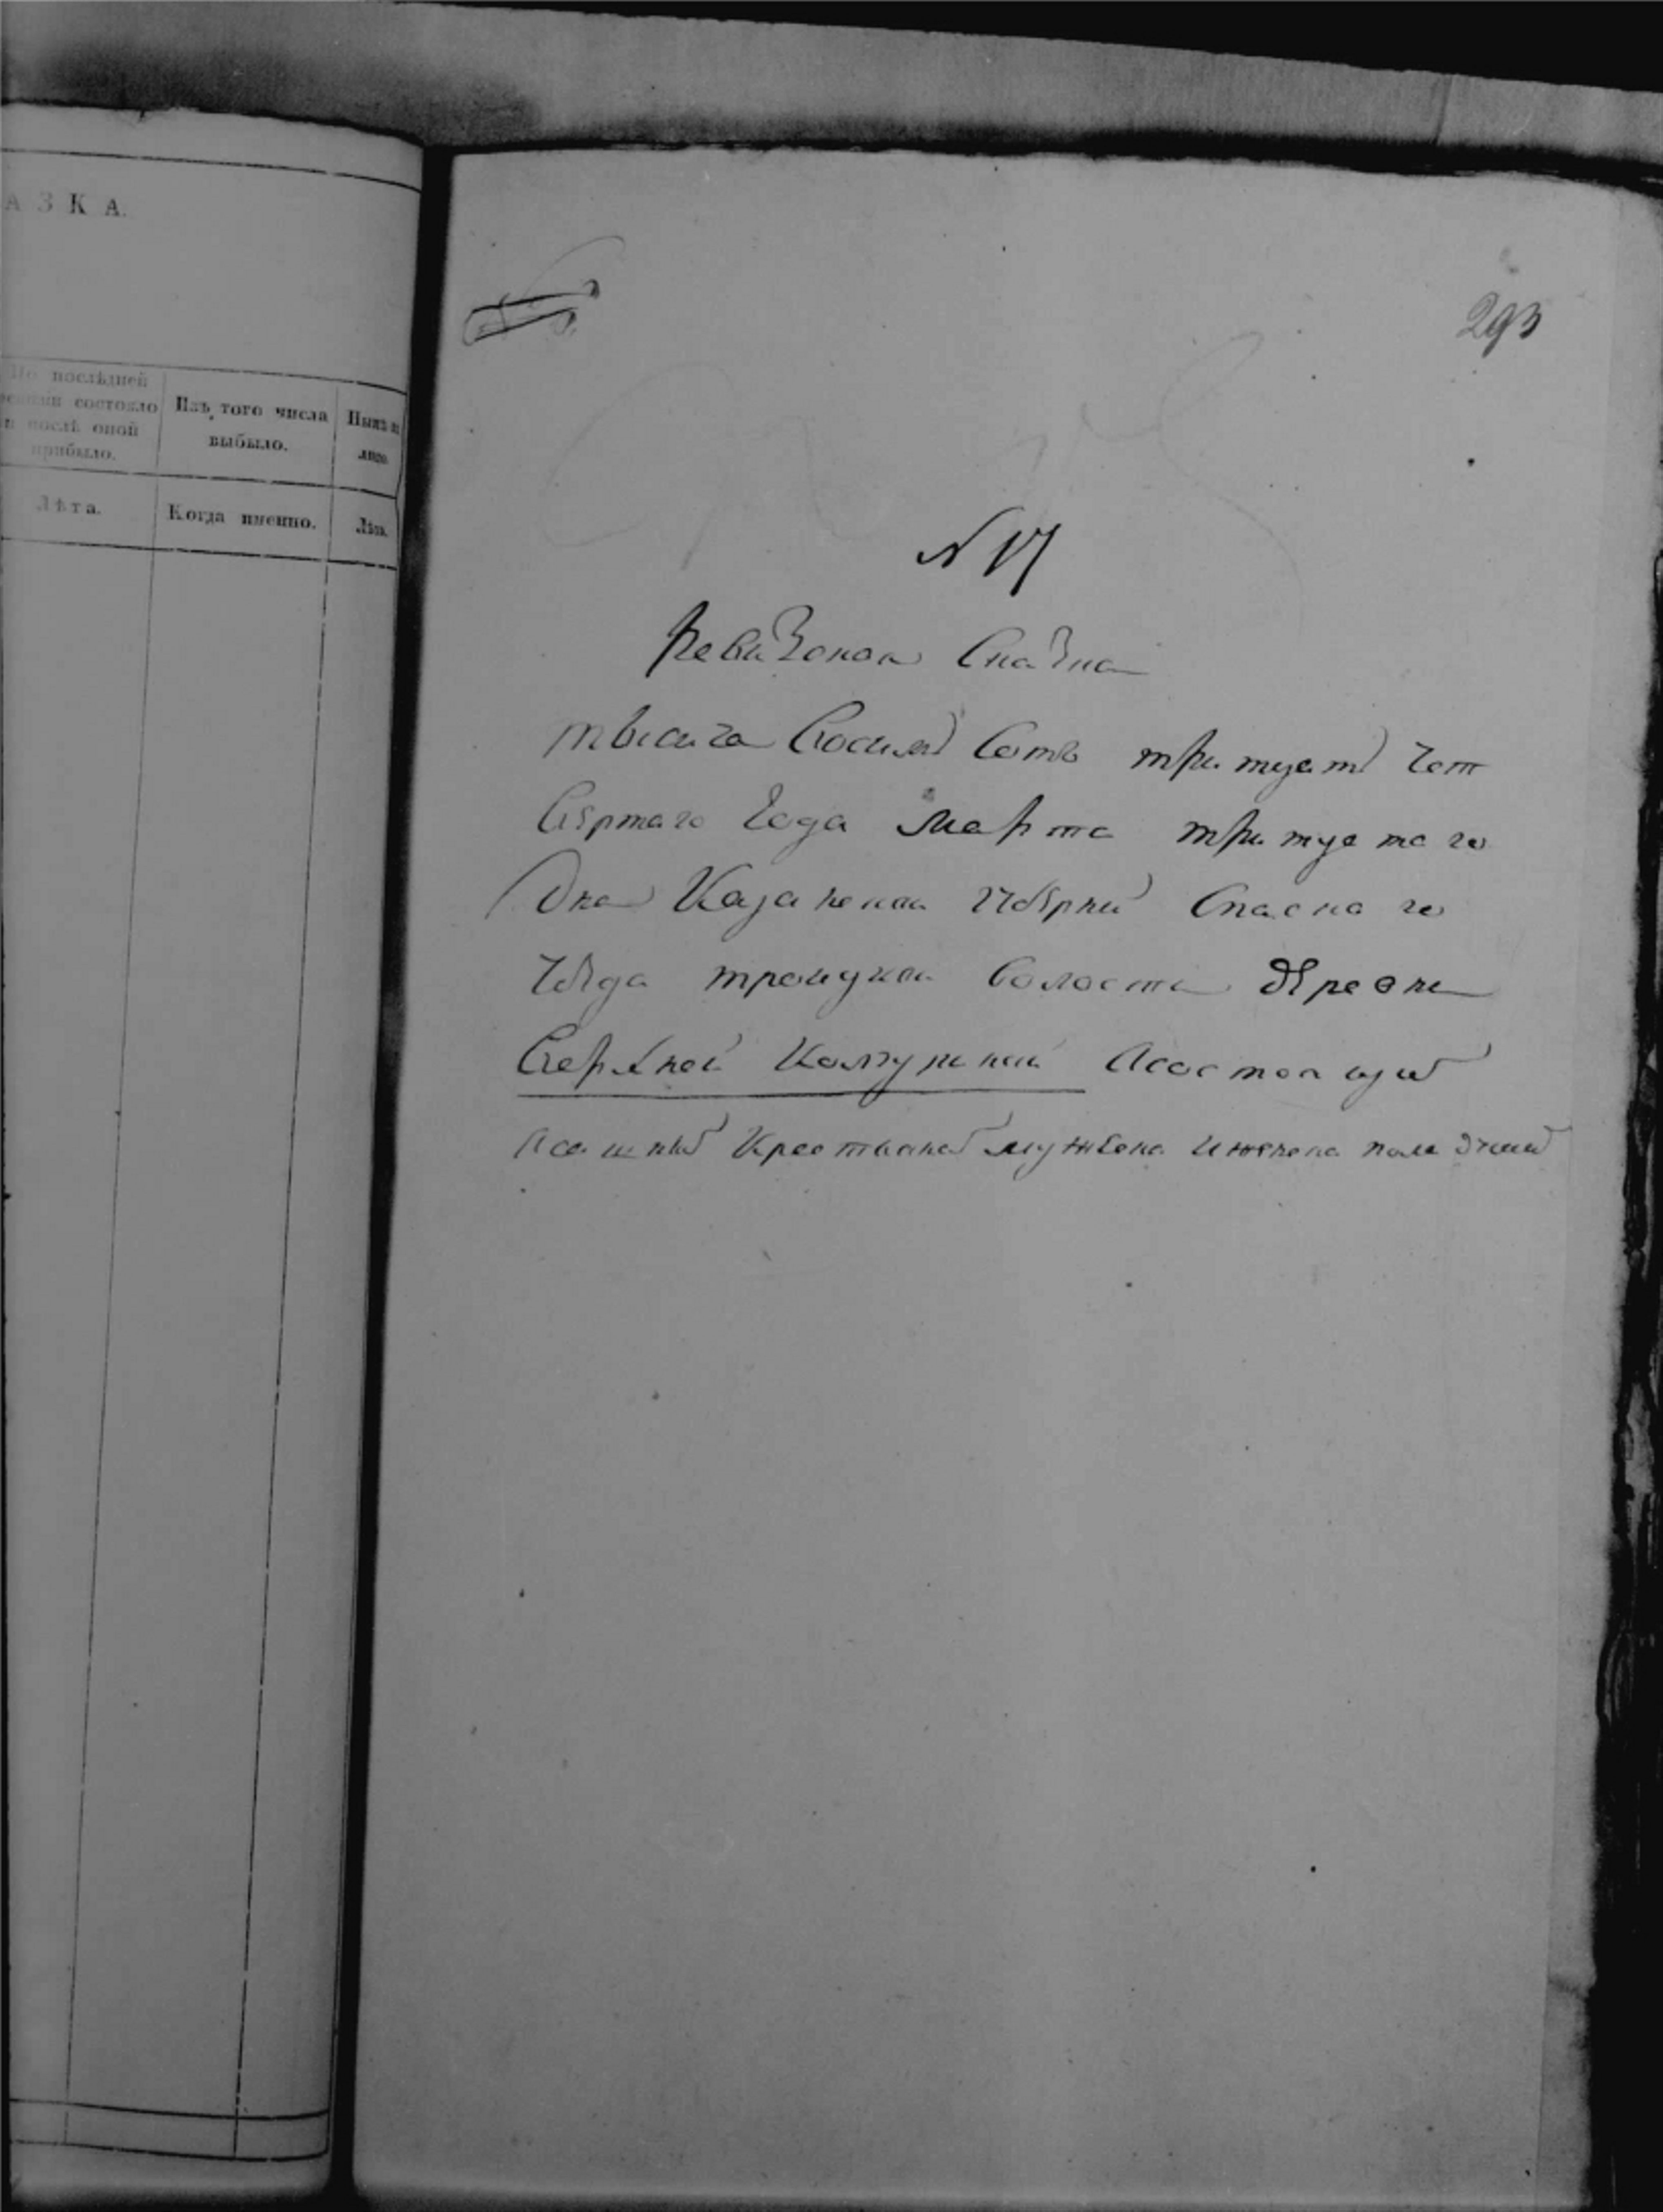 АЗКА.
По послѣдней
ревизіи состояло
и послѣ оной
прибыло.
Изъ того числа
выбыло.
Нынѣ на
лицо.
Лѣта.
Когда именно.
Лѣта.
293
N 17
Ревизская Сказка
тысяча Восимь Сотъ тритцать Чет
Вертаго Года Марта тритцатаго
Дня Казанской Губернии Спаскаго
Уезда троицкой Волости Деревни
Верхней Колчуриной Асостоящих
Ясашных Крестьянах мужеска Иженска пола душах